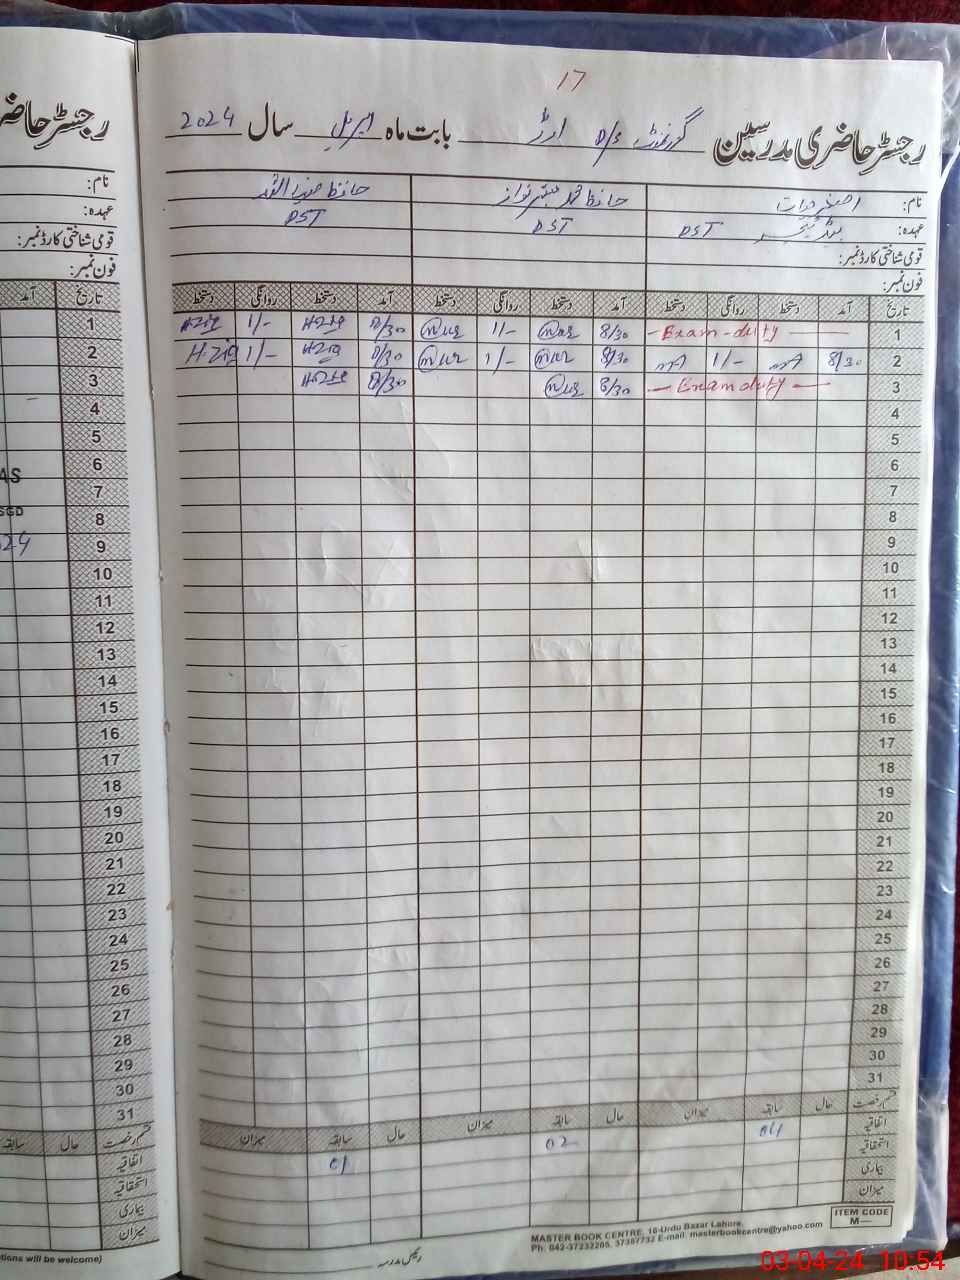 17
رجسٹر حاضری مدرسین گورنمنٹ P/S اوڑ بابت ماہ اپریل سال 2024
رجسٹر حاضر
نام: اصغر حیات حافظ محمد مبشر نواز حافظ
عہدہ: ہیڈ ٹیچر PST PST PST
قومی شناختی کارڈ نمبر:
فون نمبر:
تاریخ آمد دستخط روانگی دستخط آمد دستخط روانگی دستخط آمد دستخط روانگی دستخط
1 Exam duty 8/30 1/- 8/30 1/-
2 8/30 1/- 8/30 1/- 8/30 1/-
3 Exam duty 8/30 8/30
4
5
6
7
8
9
10
11
12
13
14
15
16
17
18
19
20
21
22
23
24
25
26
27
28
29
30
31
قسم رخصت حال سابقہ میزان حال سابقہ میزان حال سابقہ میزان
اتفاقیہ 04 02 01
استحقاقیہ
بیماری
میزان
ITEM CODE
M—
MASTER BOOK CENTRE, 16-Urdu Bazar Lahore,
Ph: 042-37232205, 37357732 E-mail: masterbookcentre@yahoo.com
رئیس مدرسہ
نام:
عہدہ:
قومی شناختی کارڈ نمبر:
فون نمبر:
تاریخ آمد
1
2
3
4
5
6
AS
7
SGD
8
9
10
11
12
13
14
15
16
17
18
19
20
21
22
23
24
25
26
27
28
29
30
31
قسم رخصت حال سابقہ
اتفاقیہ
استحقاقیہ
بیماری
میزان
tions will be welcome)
03-04-24 10:54